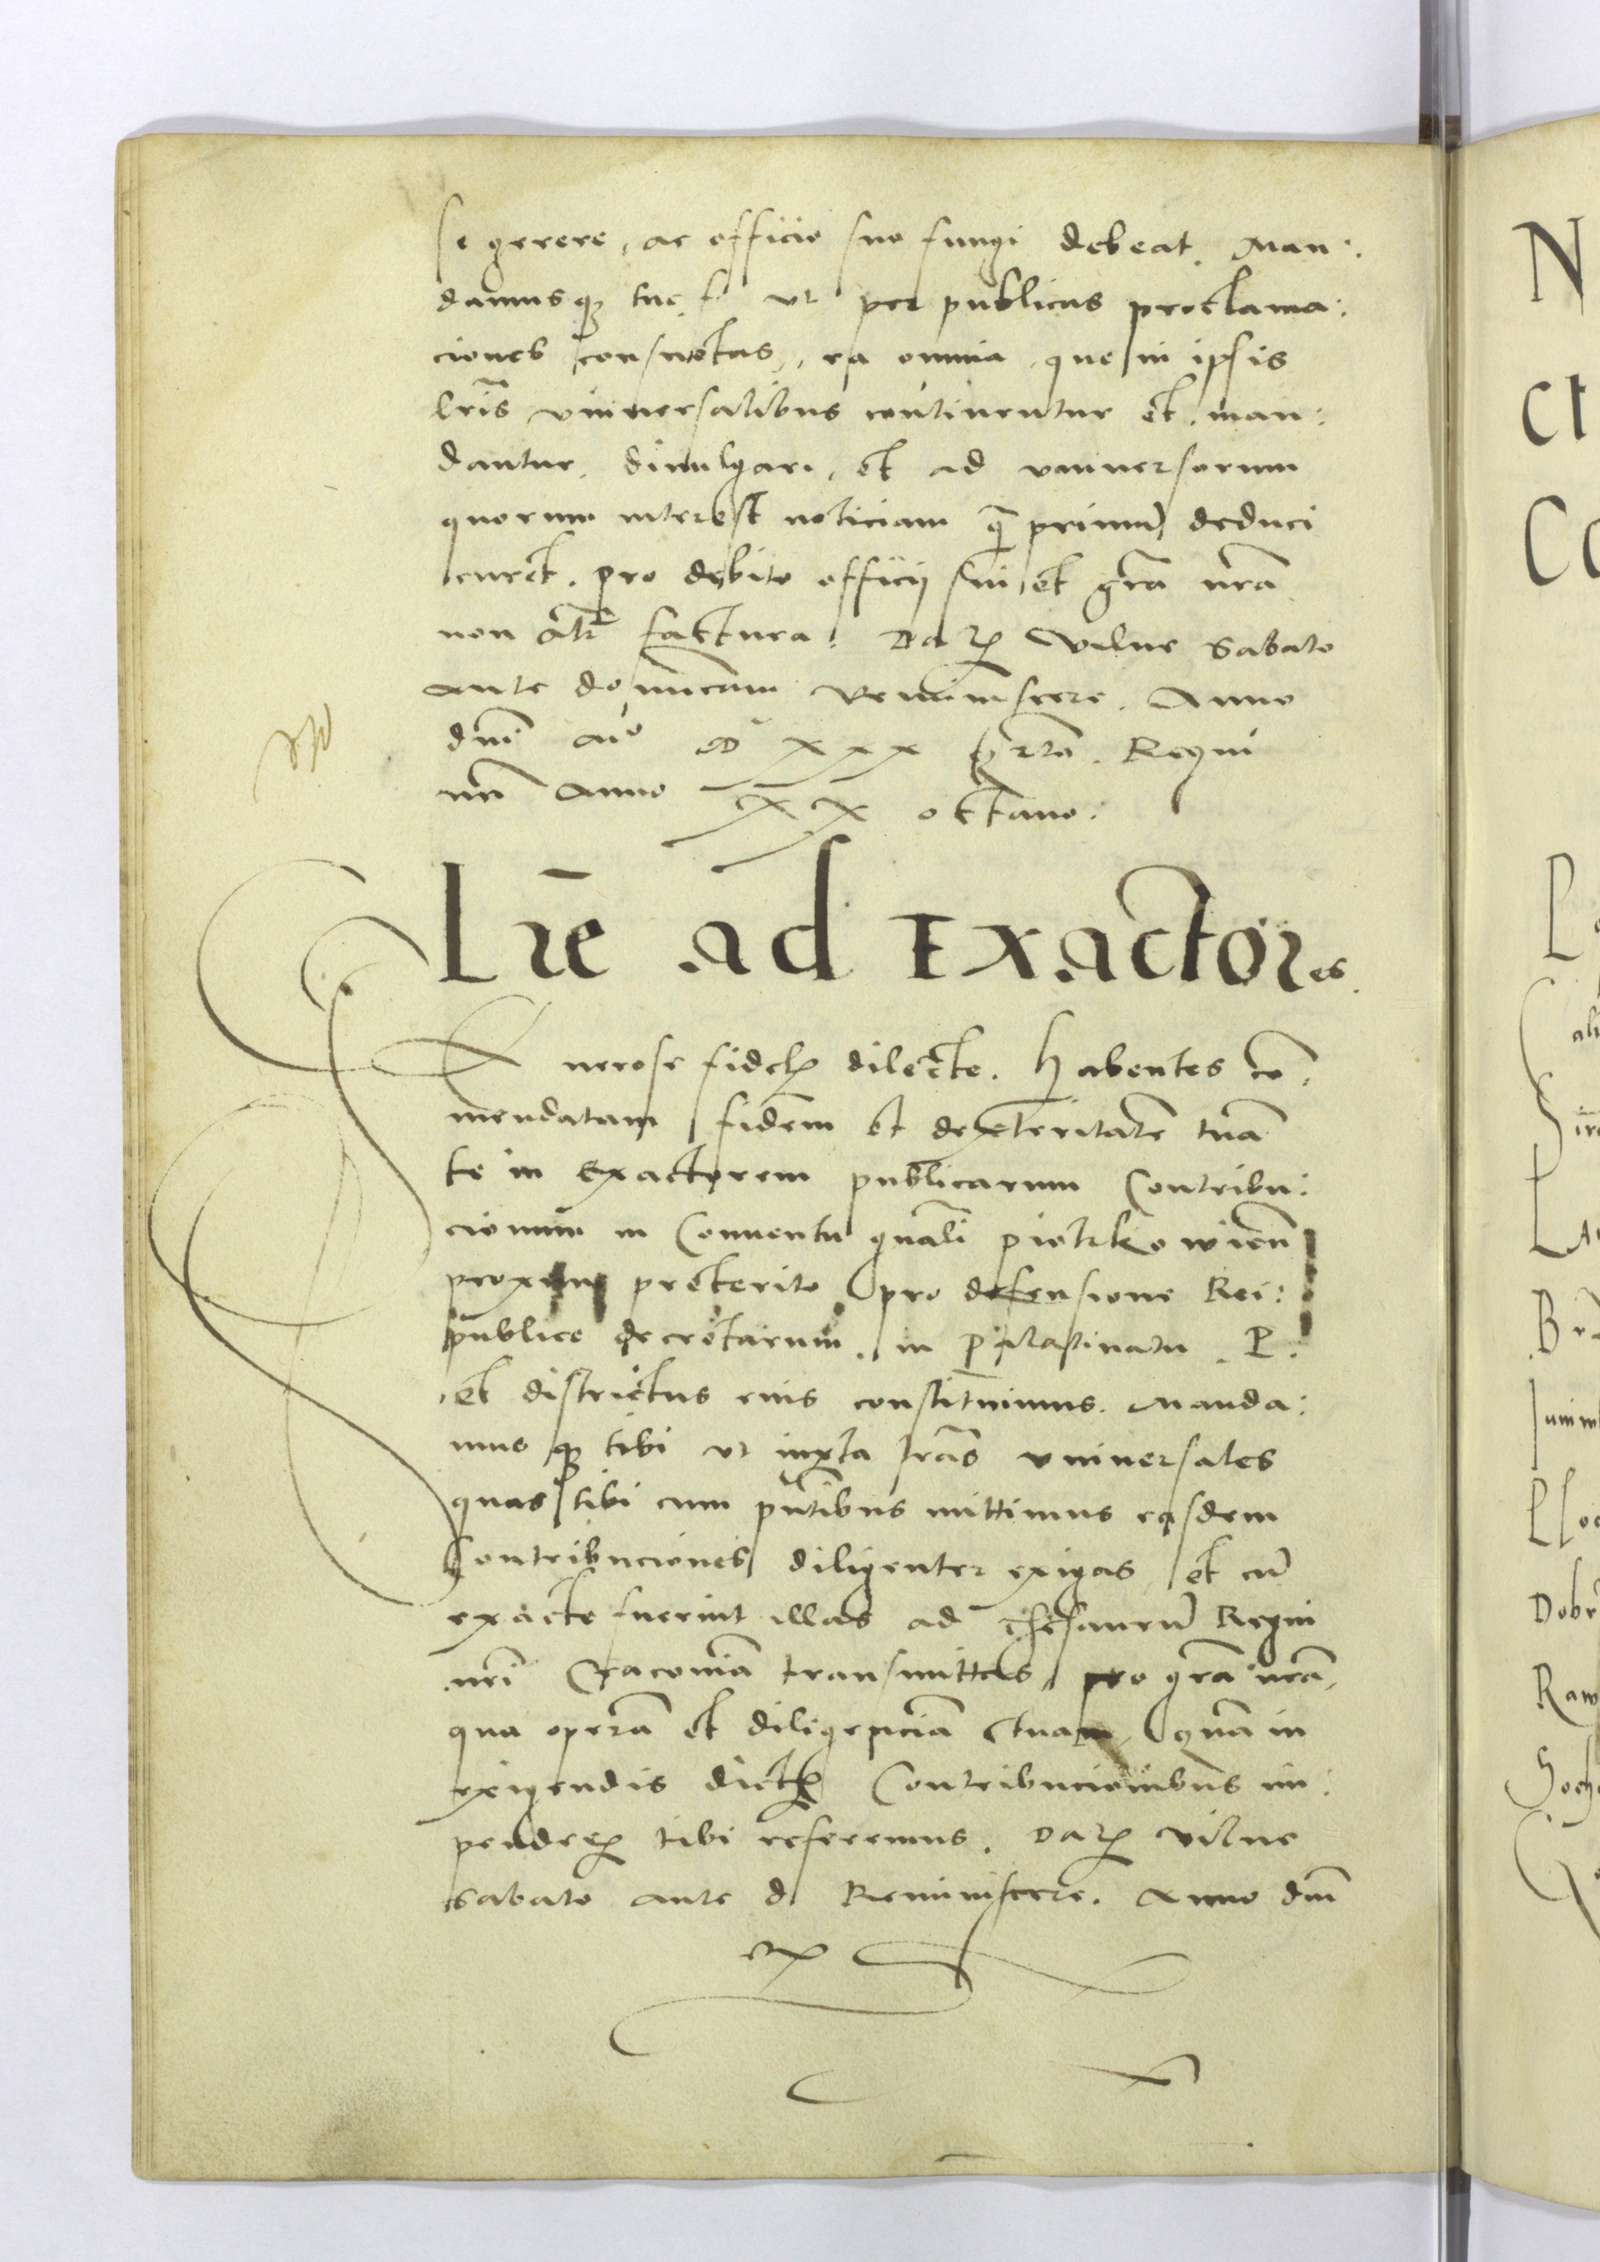 se gerere, ac officio suo fungi debeat. Man:
damusq3 tue f. ut per publicas proclama:
ciones consuetas, ea omnia, que in ipsis
lr̄is vniuersalibus continentur et man:
dantur, diuulgari, et ad vniuersorum
quorum interest noticiam q̄ primū deduci
curet. pro debito officij sui et gr̄a nr̄a
non alr̄ factura. Dat Vilne Sabato
ante dominicam Reminiscere. Anno
dnī XXX Regni
nrī Anno XX octauo:
Lrē ad Exactores.
nerose fidel dilecte. Habentes cō:
mendatam fidem et dexteritatē tuā
te in Exactorem publicarum Contribu:
cionum in Conuentu gnāli piotrkowien̄
proximo preterito pro defensione Rei:
publice decretarum. in palatinatu. P.
et districtus eius constituimus. Manda:
musq3 tibi vt iuxta lrās vniuersales
quas tibi cum pn̄tibus mittimus easdem
Contribuciones diligenter exigas, et cū
exacte fuerint illas ad thesaurū Regni
nrī Cracouiā transmittas, pro grā nrā,
qua operā et diligenciā tuam, quā in
exigendis dict Contribucionibus im:
pender tibi referemus. Dat Vilne
Sabato ante d Reminiscere. Anno dnī